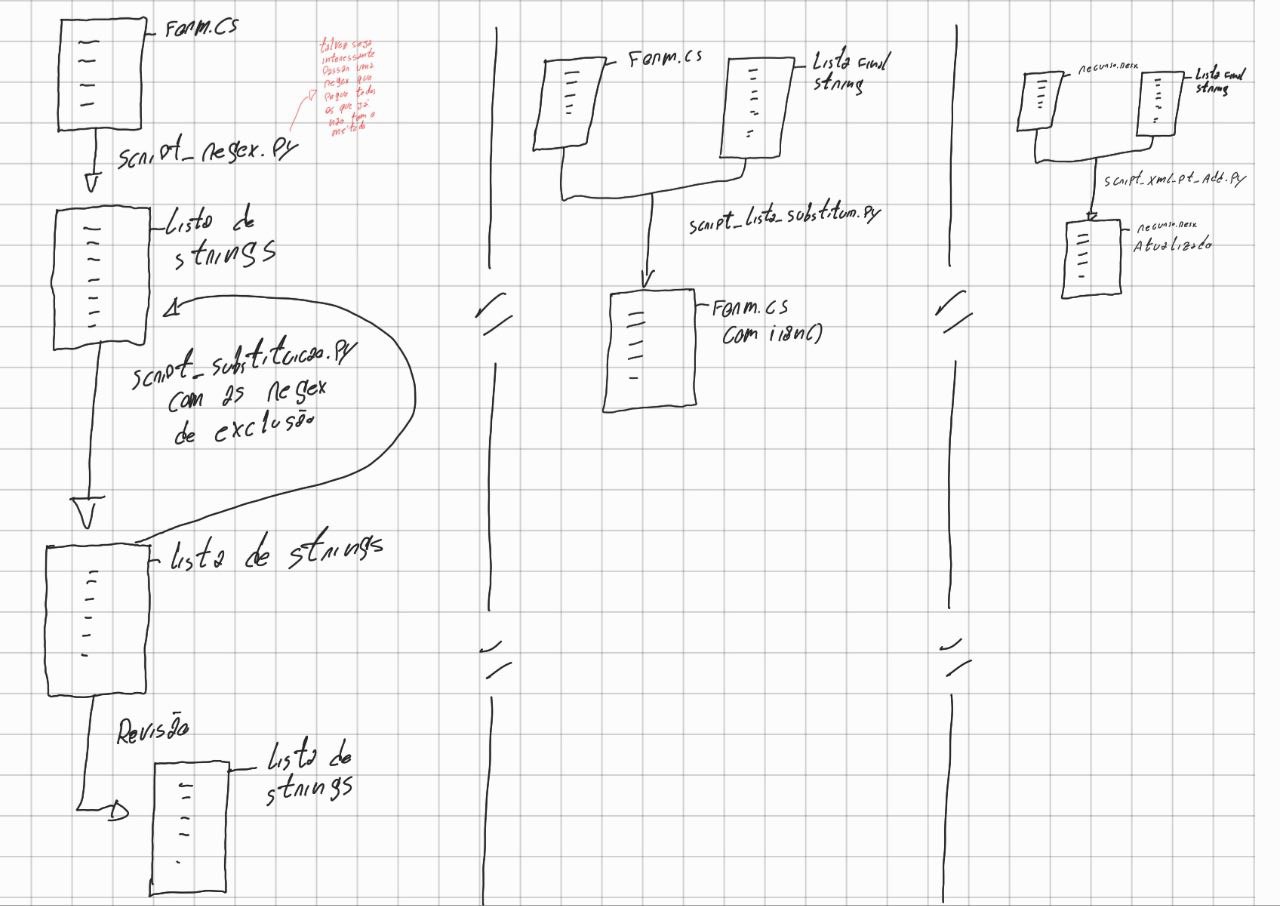 Form.cs
talvez seja
interessante
passar uma
regex que
pegue todos
os que já
não tem o
metodo
script_regex.py
Lista de
strings
script_substituicao.py
com as regex
de exclusão
Lista de strings
Revisão
Lista de
strings
Form.cs
Lista final
string
script_lista_substitui.py
Form.cs
com i18n()
recurso.resx
Lista final
string
script_xml_pt_Add.py
recurso.resx
Atualizado